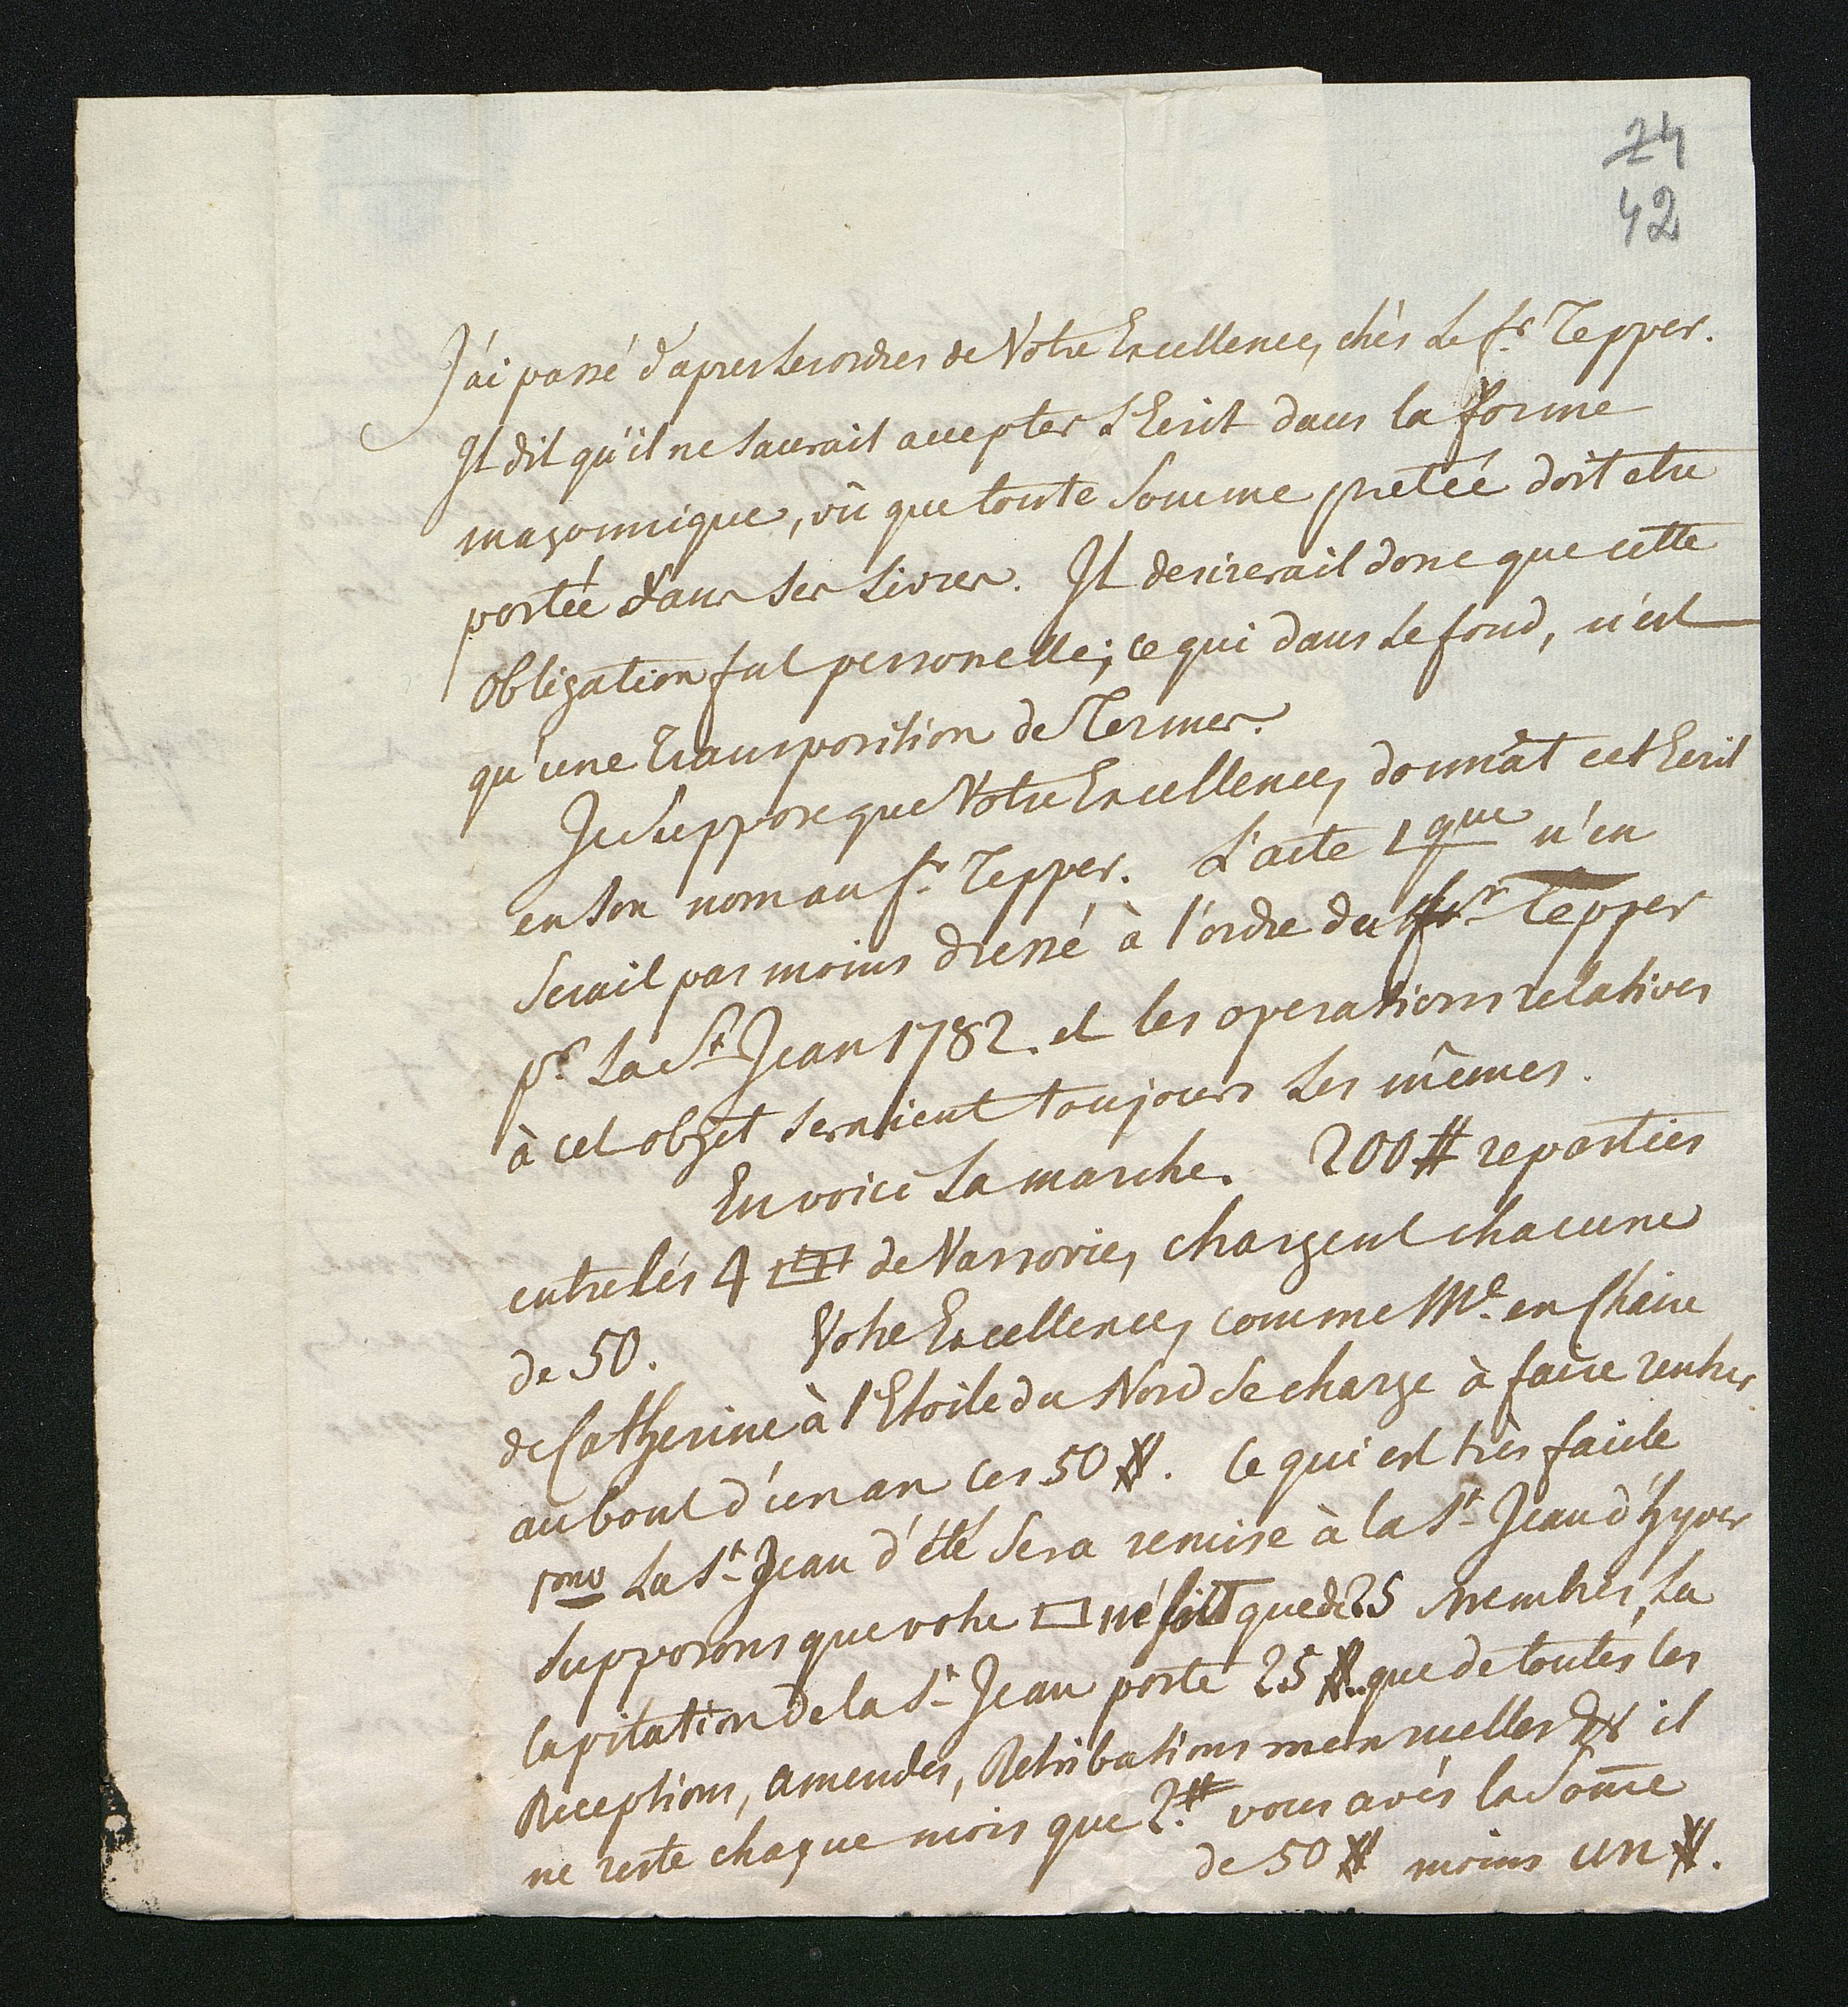 24
42
J'ai passé d'apres les ordres de Votre Excellence, chés le fr. Tepper.
Il dit qu'il ne saurait accepter l'Ecrit dans la forme
maçonnique, vû que toute Somme pretée doit etre
portée dans ses Livres. Il desirerait donc que cette
obligation fut personelle; ce qui dans le fond, n'est
qu'une transposition de Termes.
Je suppose que Votre Excellence, donnât cet Ecrit
en son nom au fr. Tepper. L'acte 1que n'en
serait pas moins dressé à l'ordre du fr. Tepper
pr. la St. Jean 1782. et les operations relatives
à cet objet seraient toujours les mêmes.
En voici la marche. 200 # reparties
entre les 4 □ de Varsovie, chargent chacune
de 50. Votre Excellence, comme Me. en Chaire
de Catherine à l'Etoile du Nord se charge à faire rentrer
au bout d'un an ces 50 #. Ce qui est très facile
1mo La St. Jean d'été sera remise à la St. Jean d'hyver
supposons que votre □ ne soit que de 25 Membres, la
Capitation de la St. Jean porte 25 #. que de toutes les
Receptions, amendes, Retributions mensuelles &c il
ne reste chaque mois que 2 # vous avés la Som̄e
de 50 # moins un #.